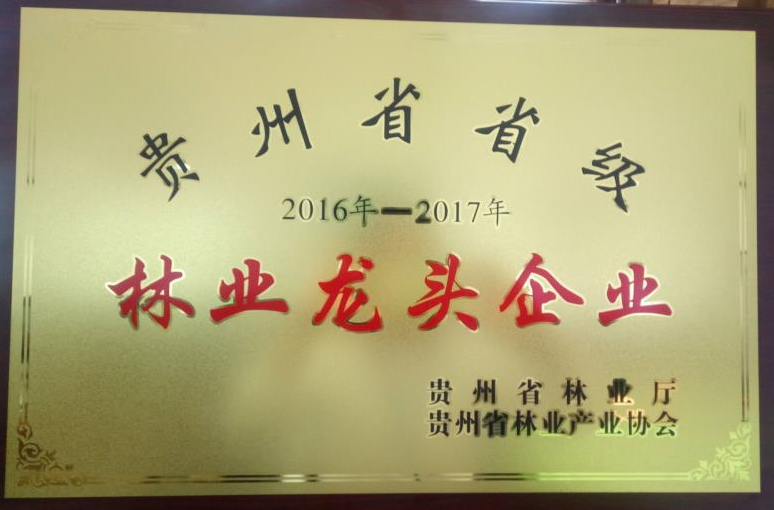 贵州省省级
2016年—2017年
林业龙头企业
贵州省林业厅
贵州省林业产业协会